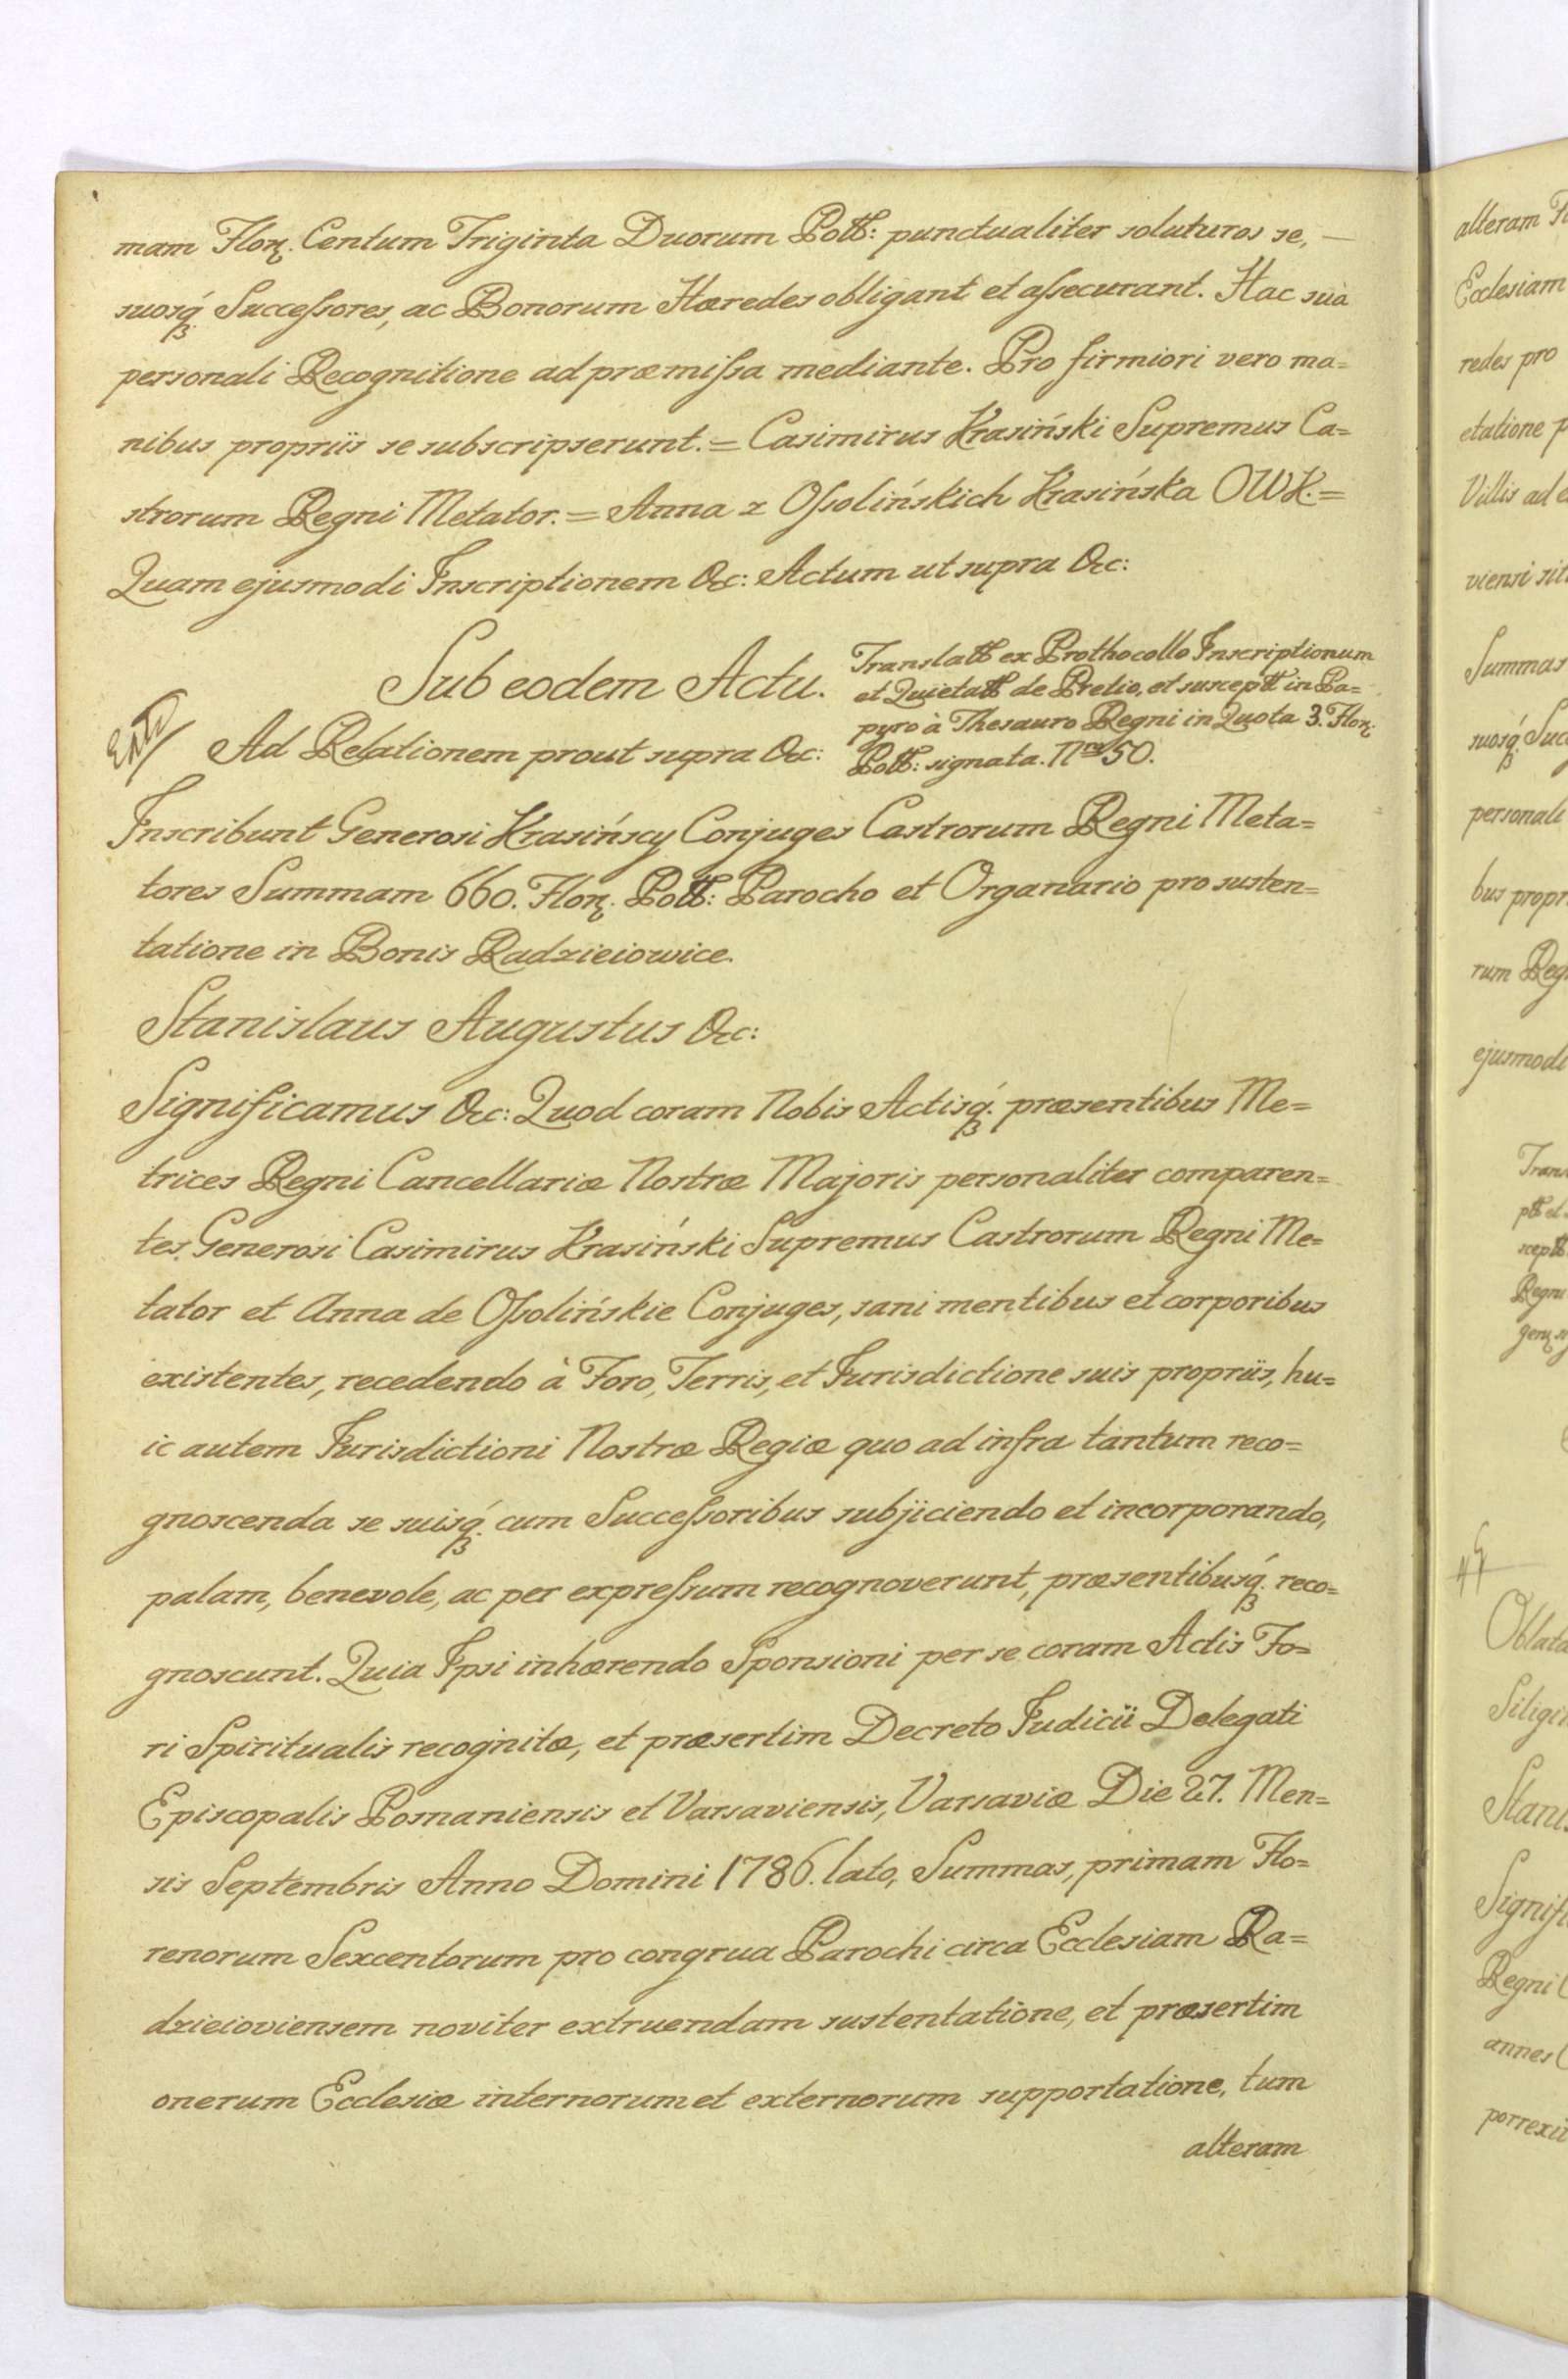 mam Flor. Centum Triginta Duorum Poll: punctualiter soluturos se, —
suosq́ꝫ Succeſsores, ac Bonorum Hæredes obligant et aſsecurant. Hac suà
personali Recognitione ad præmiſsa mediante. Pro firmiori vero ma=
nibus propriis se subscripserunt. = Casimirus Krasiński Supremus Ca=
strorum Regni Metator. = Anna z Oſsolińskich Krasińska OWK. =
Quam ejusmodi Inscriptionem &c: Actum ut supra &c:
Sub eodem Actu.
Translatt ex Prothocollo Inscriptionum
et Quietatt de Pretio, et susceptt in Pa=
pyro à Thesauro Regni in Quota 3. Flor.
Poll: signata. Nro 50.
Extr
Ad Relationem prout supra &c:
Inscribunt Generosi Krasińscy Conjuges Castrorum Regni Meta=
tores Summam 660. Flor. Poll: Parocho et Organario pro susten=
tatione in Bonis Radzieiowice.
Stanislaus Augustus &c:
Significamus &c: Quod coram Nobis Actisq́ꝫ præsentibus Me=
trices Regni Cancellariæ Nostræ Majoris personaliter comparen=
tes Generosi Casimirus Krasiński Supremus Castrorum Regni Me=
tator et Anna de Oſsolińskie Conjuges, sani mentibus et corporibus
existentes, recedendo à Foro, Terris, et Jurisdictione suis propriis, hu=
ic autem Jurisdictioni Nostræ Regiæ quo ad infra tantum reco=
gnoscenda se suisq́ꝫ cum Succeſsoribus subjiciendo et incorporando,
palam, benevole, ac per expreſsum recognoverunt, præsentibusq́ꝫ reco=
gnoscunt. Quia Ipsi inhærendo Sponsioni per se coram Actis Fo=
ri Spiritualis recognitæ, et præsertim Decreto Judicii Delegati
Episcopalis Posnaniensis et Varsaviensis, Varsaviæ Die 27. Men=
sis Septembris Anno Domini 1786. lato, Summas, primam Flo=
renorum Sexcentorum pro congrua Parochi circa Ecclesiam Ra=
dzieioviensem noviter extruendam sustentatione, et præsertim
onerum Ecclesiæ internorum et externorum supportatione, tum
alteram
alteram
Ecclesiam
redes pro
etatione
Villis ad
viensi
Summas
suosq́ꝫ
personali
bus
rum
ejusmodi
Regni